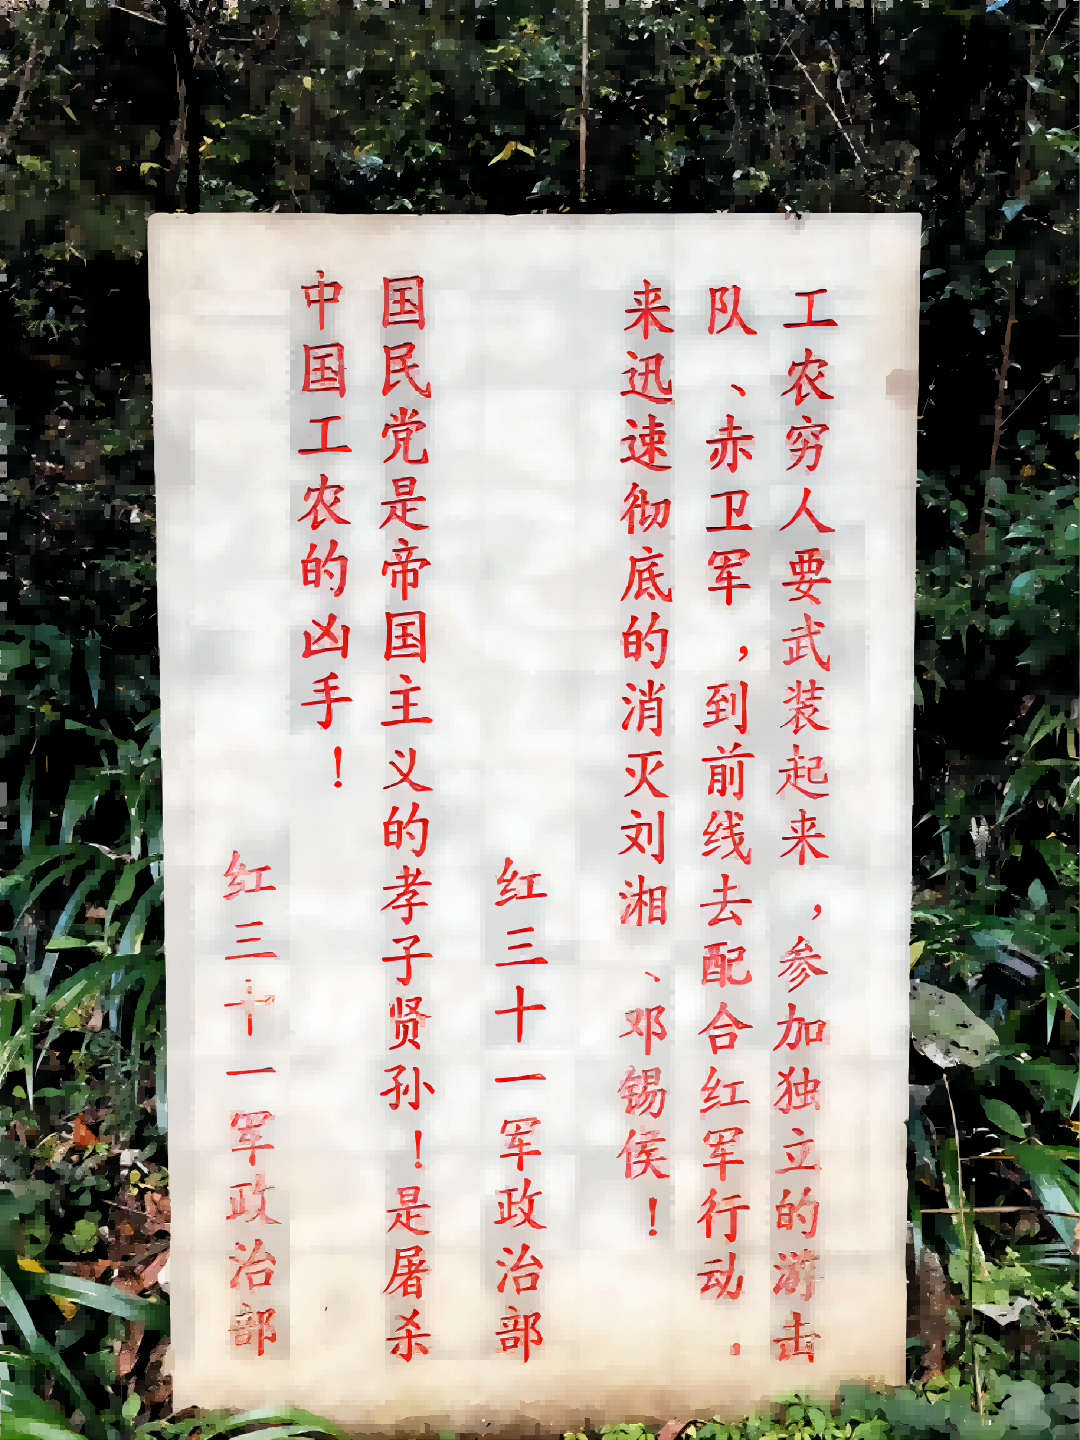 工农穷人要武装起来,参加独立的游击
队、赤卫军,到前线去配合红军行动.
来迅速彻底的消灭刘湘、邓锡侯!
红三十一军政治部
国民党是帝国主义的孝子贤孙!是屠杀
中国工农的凶手!
红三十一军政治部